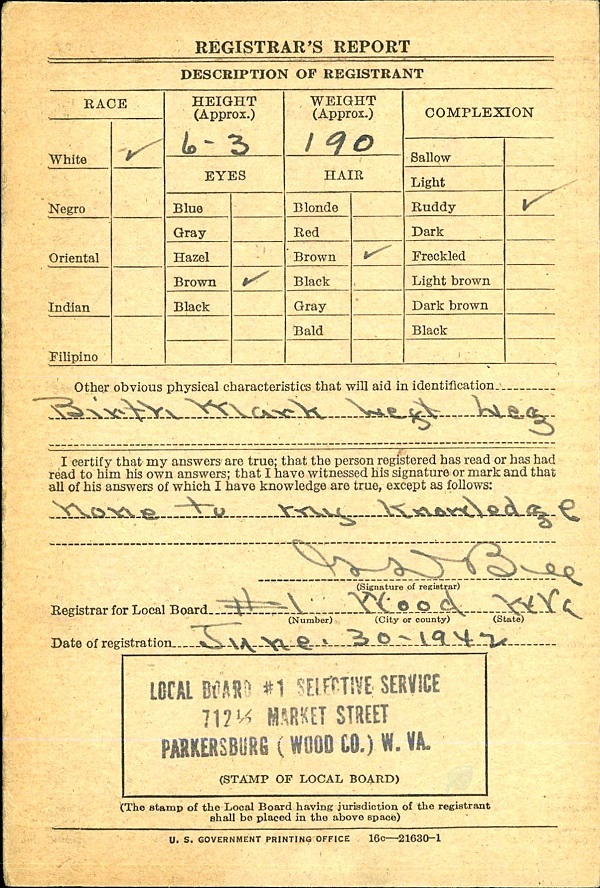 REGISTRAR'S REPORT
DESCRIPTION OF REGISTRANT
RACE
HEIGHT
(Approx.)
WEIGHT
(Approx.)
COMPLEXION
6-3
190
White ✓
EYES
HAIR
Sallow
Light
Negro
Blue
Blonde
Ruddy ✓
Gray
Red
Dark
Oriental
Hazel
Brown ✓
Freckled
Brown ✓
Black
Light brown
Indian
Black
Gray
Dark brown
Bald
Black
Filipino
Other obvious physical characteristics that will aid in identification
Birth Mark Left Leg
I certify that my answers are true; that the person registered has read or has had
read to him his own answers; that I have witnessed his signature or mark and that
all of his answers of which I have knowledge are true, except as follows:
none to my knowledge
(Signature of registrar)
Registrar for Local Board #1 Wood WVa
(Number) (City or county) (State)
Date of registration June. 30-1942
LOCAL BOARD #1 SELECTIVE SERVICE
712½ MARKET STREET
PARKERSBURG (WOOD CO.) W. VA.
(STAMP OF LOCAL BOARD)
(The stamp of the Local Board having jurisdiction of the registrant
shall be placed in the above space)
U. S. GOVERNMENT PRINTING OFFICE 16c—21630-1